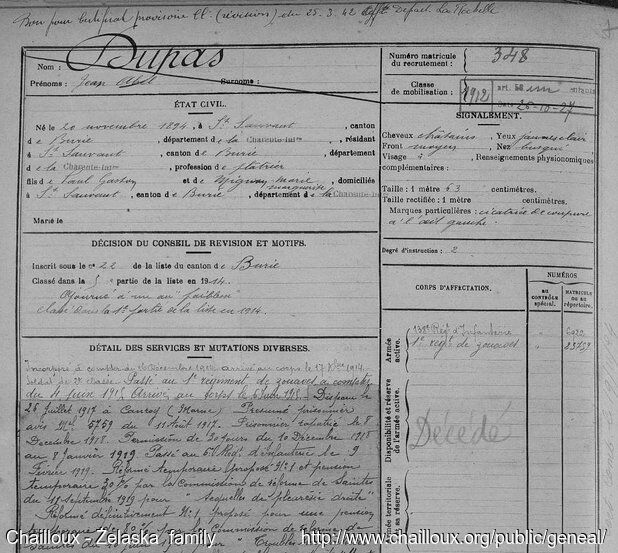 Bon pour Certificat provisoire Ct. (révision) du 25.3.42 Départ. La Rochelle
Nom : Dupas
Prénoms : Jean Abel Surnoms :
Numéro matricule du recrutement : 348
Classe de mobilisation : 1912
art. 58
Date 26-10-27
ÉTAT CIVIL.
Né le 20 novembre 1894, à St Sauvant, canton
de Burie, département de la Charente-Infre, résidant
à St Sauvant, canton de Burie, département
de la Charente-Infre, profession de plâtrier
fils de Paul Gaston et de Mignon Marie Marguerite, domiciliés
à St Sauvant, canton de Burie, département de la Charente-Infre
Marié le
SIGNALEMENT.
Cheveux châtains Yeux jaunes clair
Front moyen Nez busqué
Visage Renseignements physionomiques
complémentaires :
Taille : 1 mètre 63 centimètres.
Taille rectifiée : 1 mètre centimètres.
Marques particulières : cicatrice de coupure
à l'œil gauche
Degré d'instruction : 2
DÉCISION DU CONSEIL DE REVISION ET MOTIFS.
Inscrit sous le n° 22 de la liste du canton de Burie
Classé dans la 5e partie de la liste en 1914
Ajourné à un an "faiblesse"
classé dans la 1e partie de la liste en 1914.
CORPS D'AFFECTATION.
NUMÉROS
AU CONTRÔLE spécial.
MATRICULE ou au répertoire.
Armée active.
138e Rég. d'Infanterie
1er régt de zouaves
Disponibilité et réserve de l'armée active.
Décédé
Armée territoriale et sa réserve.
DÉTAIL DES SERVICES ET MUTATIONS DIVERSES.
Incorporé à compter du 16 Décembre 1914 arrivé au corps le 17 Xbre 1914.
Soldat de 2e classe. Passé au 1er régiment de zouaves à compter
du 4 juin 1915. Arrivé au corps le 5 juin 1915. Disparu le
26 juillet 1917 à Cauroy (Marne) Présumé prisonnier
avis N° 5759 du 11 Août 1917. Prisonnier rapatrié le 8
Décembre 1918. Permission de 30 jours du 10 Décembre 1918
au 8 Janvier 1919. Passé au 6e Rég. d'Infanterie le 9
Février 1919. Réformé temporaire proposé N° 1 et pension
temporaire 30% par la Commission de réforme de Saintes
du 18 septembre 1919 pour "Sequelles de pleurésie droite"
Réformé définitivement N° 1 proposé pour une pension
temporaire de 30% par la Commission de réforme de
Chailloux - Żelaska family http://www.chailloux.org/public/geneal/